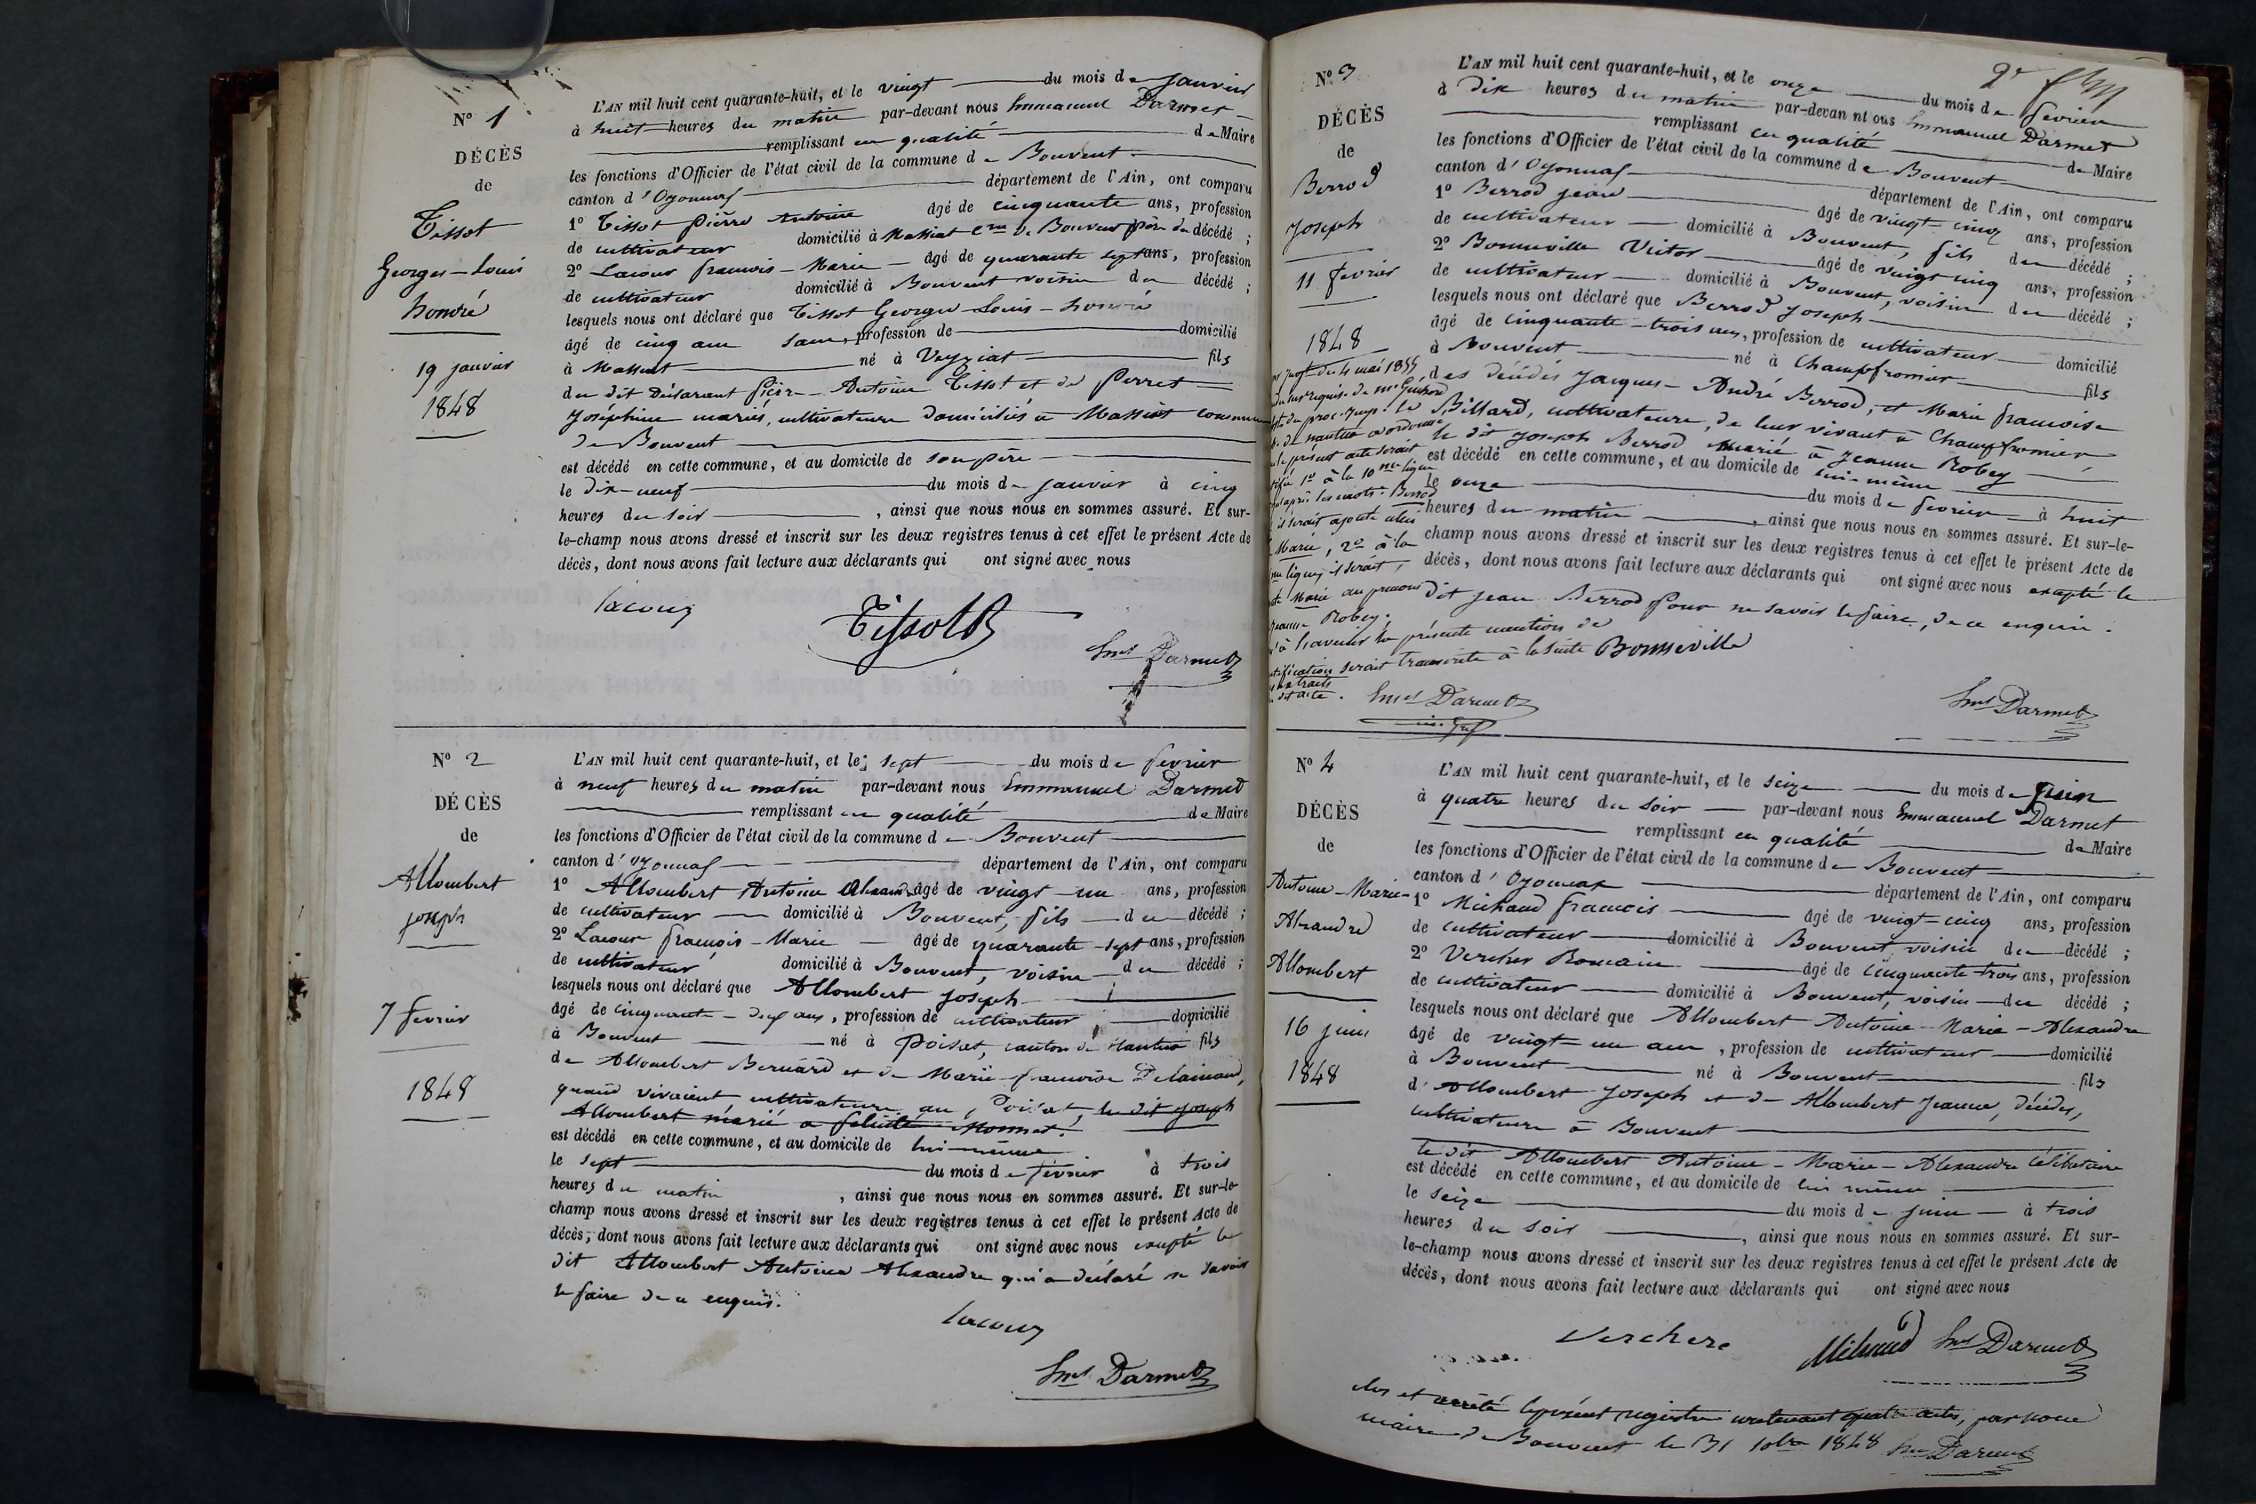 N° 1
DÉCÈS
de
Tissot
Georges-Louis
honoré
19 janvier
1848
L'AN mil huit cent quarante-huit, et le vingt du mois de janvier
à huit heures du matin par-devant nous Emmanuel Darmet
remplissant en qualité de Maire
les fonctions d'Officier de l'état civil de la commune de Bouvent
canton d'Oyonnax département de l'Ain, ont comparu
1° Tissot Pierre Antoine âgé de cinquante ans, profession
de cultivateur domicilié à Massiat Cne de Bouvent père du décédé ;
2° Lacour françois-Marie âgé de quarante sept ans, profession
de cultivateur domicilié à Bouvent voisin du décédé ;
lesquels nous ont déclaré que Tissot Georges Louis-honoré
âgé de cinq ans sans profession de domicilié
à Massiat né à Veyziat fils
du dit Déclarant Pierre-Antoine Tissot et de Perret
Joséphine mariés, cultivateurs domiciliés à Massiat commune
de Bouvent
est décédé en cette commune, et au domicile de son père
le dix-neuf du mois de janvier à cinq
heures du soir , ainsi que nous nous en sommes assuré. Et sur-
le-champ nous avons dressé et inscrit sur les deux registres tenus à cet effet le présent Acte de
décès, dont nous avons fait lecture aux déclarants qui ont signé avec nous
Lacour
Tissot
Emel Darmet
N° 2
DÉCÈS
de
Allombert
joseph
7 fevrier
1848
L'AN mil huit cent quarante-huit, et le sept du mois de fevrier
à neuf heures du matin par-devant nous Emmanuel Darmet
remplissant en qualité de Maire
les fonctions d'Officier de l'état civil de la commune de Bouvent
canton d'Oyonnax département de l'Ain, ont comparu
1° Allombert Antoine Alexandre âgé de vingt-un ans, profession
de cultivateur domicilié à Bouvent, fils du décédé ;
2° Lacour françois-Marie âgé de quarante-sept ans, profession
de cultivateur domicilié à Bouvent, voisin du décédé ;
lesquels nous ont déclaré que Allombert joseph
âgé de cinquante- ans, profession de cultivateur domicilié
à Bouvent né à Poizat, canton de Nantua fils
de Allombert Bernard et de Marie-françoise
quand vivaient cultivateurs au Poizat, le dit joseph
Allombert marié à Monnet.
est décédé en cette commune, et au domicile de lui-même
le sept du mois de février à trois
heures du matin , ainsi que nous nous en sommes assuré. Et sur-le-
champ nous avons dressé et inscrit sur les deux registres tenus à cet effet le présent Acte de
décès, dont nous avons fait lecture aux déclarants qui ont signé avec nous excepté le
dit Allombert Antoine Alexandre qui a déclaré ne savoir
le faire de ce enquis.
Lacour
Emel Darmet
N° 3
DÉCÈS
de
Berrod
Joseph
11 fevrier
1848
L'AN mil huit cent quarante-huit, et le onze du mois de fevrier
à dix heures du matin par-devant nous Emmanuel Darmet
remplissant en qualité de Maire
les fonctions d'Officier de l'état civil de la commune de Bouvent
canton d'Oyonnax département de l'Ain, ont comparu
1° Berrod jean âgé de vingt-cinq ans, profession
de cultivateur domicilié à Bouvent, fils du décédé ;
2° Bonneville Victor âgé de vingt cinq ans, profession
de cultivateur domicilié à Bouvent, voisin du décédé ;
lesquels nous ont déclaré que Berrod Joseph
âgé de cinquante-trois ans, profession de cultivateur domicilié
à Bouvent né à Champfromier fils
des décédés Jacques-André Berrod, et Marie françoise
Billard, cultivateurs, de leur vivant à Champfromier
le dit Joseph Berrod marié à Jeanne Robey
est décédé en cette commune, et au domicile de lui-même
le onze du mois de fevrier à huit
heures du matin , ainsi que nous nous en sommes assuré. Et sur-le-
champ nous avons dressé et inscrit sur les deux registres tenus à cet effet le présent Acte de
décès, dont nous avons fait lecture aux déclarants qui ont signé avec nous excepté le
dit jean Berrod pour ne savoir le faire, de ce enquis.
mai 1855
le présent acte serait
1° à la 10me ligne
après les mots Berrod
il serait ajouté celui
Marie, 2° à la
ligne, il serait
Marie au prénom
Jeanne Robey.
à l'avenir la présente mention de
rectification serait transcrite à la suite
dit acte.
Bonneville
Emel Darmet
Emel Darmet
N° 4
DÉCÈS
de
Antoine-Marie-
Alexandre
Allombert
16 juin
1848
L'AN mil huit cent quarante-huit, et le seize du mois de juin
à quatre heures du soir par-devant nous Emmanuel Darmet
remplissant en qualité de Maire
les fonctions d'Officier de l'état civil de la commune de Bouvent
canton d'Oyonnax département de l'Ain, ont comparu
1° Michaud francois âgé de vingt-cinq ans, profession
de cultivateur domicilié à Bouvent voisin du décédé ;
2° Verchere Romain âgé de cinquante trois ans, profession
de cultivateur domicilié à Bouvent, voisin du décédé ;
lesquels nous ont déclaré que Allombert Antoine-Marie-Alexandre
âgé de vingt-un ans , profession de cultivateur domicilié
à Bouvent né à Bouvent fils
d'Allombert Joseph et de Allombert Jeanne, décédés,
cultivateurs à Bouvent
le dit Allombert Antoine-Marie-Alexandre Célibataire
est décédé en cette commune, et au domicile de lui même
le seize du mois de juin à trois
heures du soir , ainsi que nous nous en sommes assuré. Et sur-
le-champ nous avons dressé et inscrit sur les deux registres tenus à cet effet le présent Acte de
décès, dont nous avons fait lecture aux déclarants qui ont signé avec nous
Verchere
Michaud
Emel Darmet
clos et arrêté le présent registre contenant quatre actes, par nous
maire de Bouvent le 31 Xbre 1848 Emel Darmet